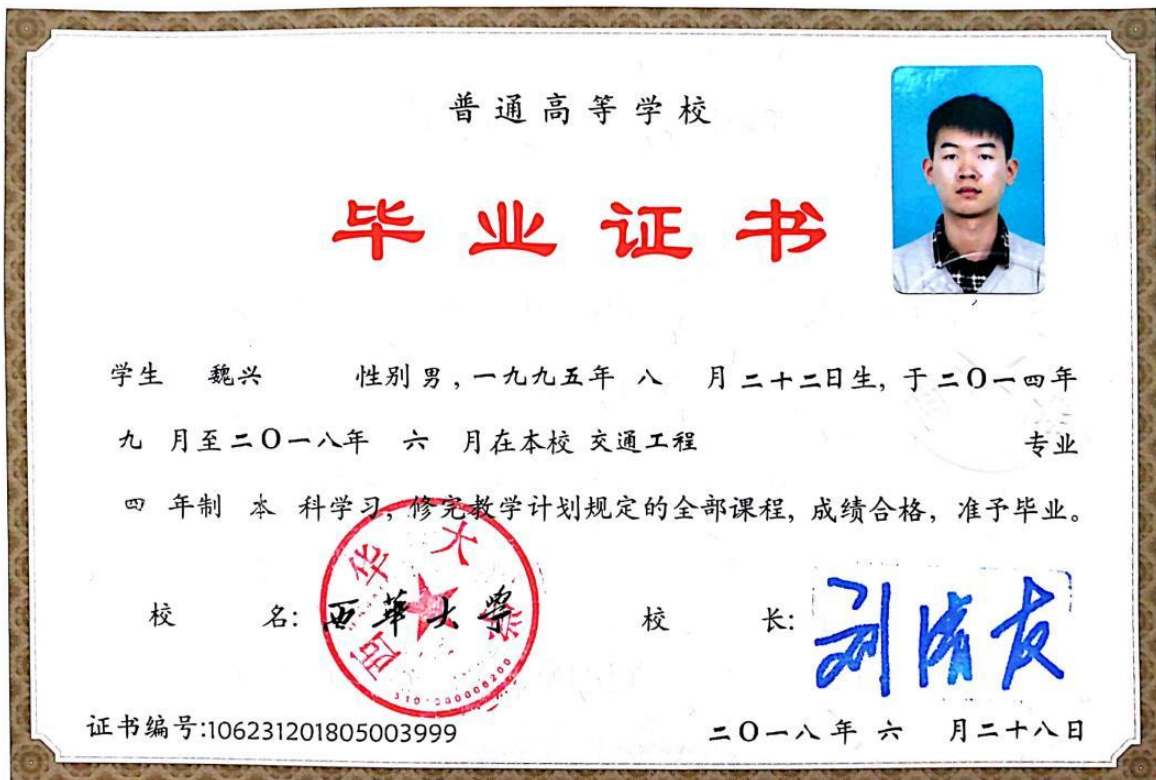 普通高等学校
毕业证书
学生 魏兴 性别男,一九九五年 八 月二十二日生,于二〇一四年
九 月至二〇一八年 六 月在本校 交通工程 专业
四 年制 本 科学习,修完教学计划规定的全部课程,成绩合格,准予毕业。
校 名:西華大学 校 长:刘清友
西华大学
证书编号:106231201805003999 二〇一八年 六 月二十八日